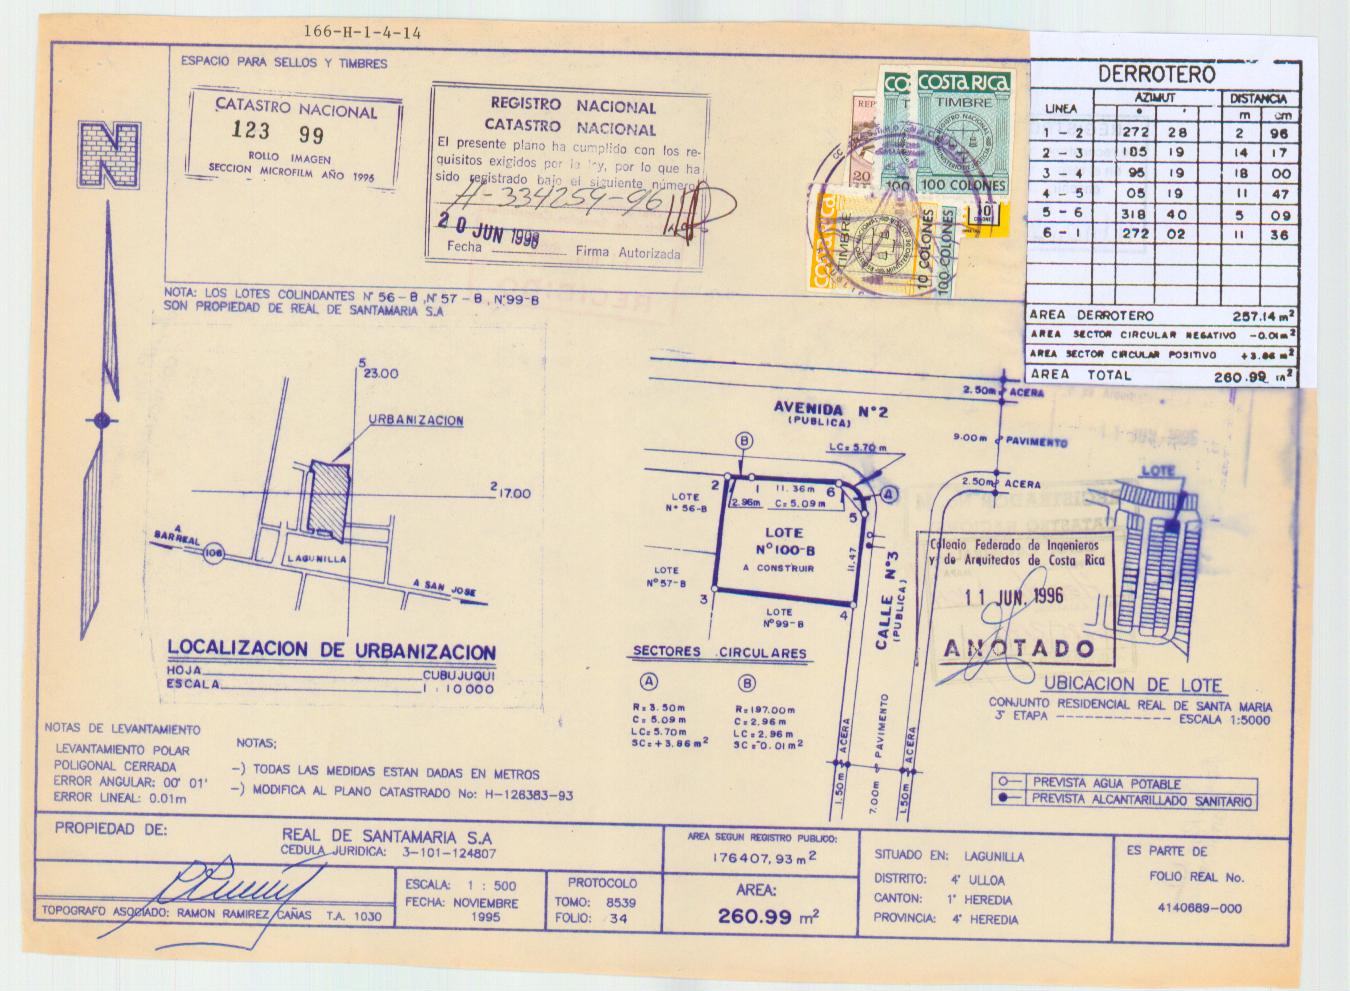 166-H-1-4-14
ESPACIO PARA SELLOS Y TIMBRES
CATASTRO NACIONAL
123 99
ROLLO IMAGEN
SECCION MICROFILM AÑO 1996
REGISTRO NACIONAL
CATASTRO NACIONAL
El presente plano ha cumplido con los re-
quisitos exigidos por la ley, por lo que ha
sido registrado bajo el siguiente número
H-334259-96
20 JUN 1996
Fecha Firma Autorizada
COSTA RICA
TIMBRE
100 COLONES
TIMBRE
100 COLONES
100 COLONES
DERROTERO
LINEA AZIMUT DISTANCIA
° ' m cm
1 - 2 272 28 2 96
2 - 3 185 19 14 17
3 - 4 95 19 18 00
4 - 5 05 19 11 47
5 - 6 318 40 5 09
6 - 1 272 02 11 36
AREA DERROTERO 257.14 m²
AREA SECTOR CIRCULAR NEGATIVO -0.01m²
AREA SECTOR CIRCULAR POSITIVO +3.86 m²
AREA TOTAL 260.99 m²
NOTA: LOS LOTES COLINDANTES N° 56-B, N° 57-B, N°99-B
SON PROPIEDAD DE REAL DE SANTAMARIA S.A
N
5 23.00
URBANIZACION
2 17.00
A BARREAL
106
LAGUNILLA
A SAN JOSE
LOCALIZACION DE URBANIZACION
HOJA CUBUJUQUI
ESCALA 1:10000
2.50m ACERA
AVENIDA N°2
(PUBLICA)
9.00m PAVIMENTO
LC=5.70 m
2.50m ACERA
B
2 1 11.36m 6 A
2.96m C=5.09m
5
LOTE
N° 56-B
LOTE
N°100-B
A CONSTRUIR
11.47
LOTE
N°57-B
3
4
LOTE
N°99-B
CALLE N°3
(PUBLICA)
1.50m ACERA
7.00m PAVIMENTO
1.50m ACERA
SECTORES CIRCULARES
A B
R=3.50m R=197.00m
C=5.09m C=2.96m
LC=5.70m LC=2.96m
SC=+3.86m² SC=-0.01m²
Colegio Federado de Ingenieros
y de Arquitectos de Costa Rica
11 JUN. 1996
ANOTADO
LOTE
UBICACION DE LOTE
CONJUNTO RESIDENCIAL REAL DE SANTA MARIA
3° ETAPA ESCALA 1:5000
NOTAS DE LEVANTAMIENTO
LEVANTAMIENTO POLAR
POLIGONAL CERRADA
ERROR ANGULAR: 00' 01'
ERROR LINEAL: 0.01m
NOTAS;
-) TODAS LAS MEDIDAS ESTAN DADAS EN METROS
-) MODIFICA AL PLANO CATASTRADO No: H-126383-93
PREVISTA AGUA POTABLE
PREVISTA ALCANTARILLADO SANITARIO
PROPIEDAD DE:
REAL DE SANTAMARIA S.A
CEDULA JURIDICA: 3-101-124807
TOPOGRAFO ASOCIADO: RAMON RAMIREZ CAÑAS T.A. 1030
ESCALA: 1 : 500
FECHA: NOVIEMBRE
1995
PROTOCOLO
TOMO: 8539
FOLIO: 34
AREA SEGUN REGISTRO PUBLICO:
176407,93 m²
AREA:
260.99 m²
SITUADO EN: LAGUNILLA
DISTRITO: 4° ULLOA
CANTON: 1° HEREDIA
PROVINCIA: 4° HEREDIA
ES PARTE DE
FOLIO REAL No.
4140689-000